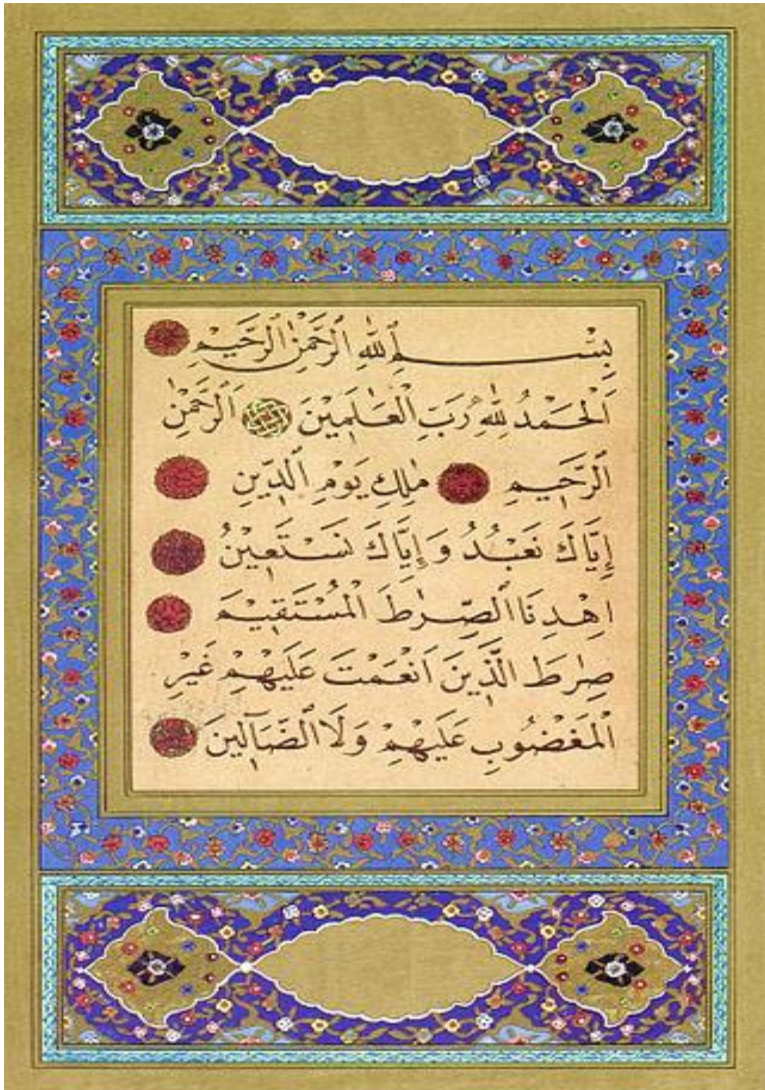 بِسْمِ ٱللّٰهِ ٱلرَّحْمٰنِ ٱلرَّحٖيمِ
اَلْحَمْدُ لِلّٰهِ رَبِّ الْعَالَمٖينَ اَلرَّحْمٰنِ
الرَّحٖيمِ مٰلِكِ يَوْمِ الدّٖينِ
اِيَّاكَ نَعْبُدُ وَاِيَّاكَ نَسْتَعٖينُ
اِهْدِنَا الصِّرٰطَ الْمُسْتَقٖيمَ
صِرٰطَ الَّذٖينَ اَنْعَمْتَ عَلَيْهِمْ غَيْرِ
الْمَغْضُوبِ عَلَيْهِمْ وَلَا الضَّٓالّٖينَ